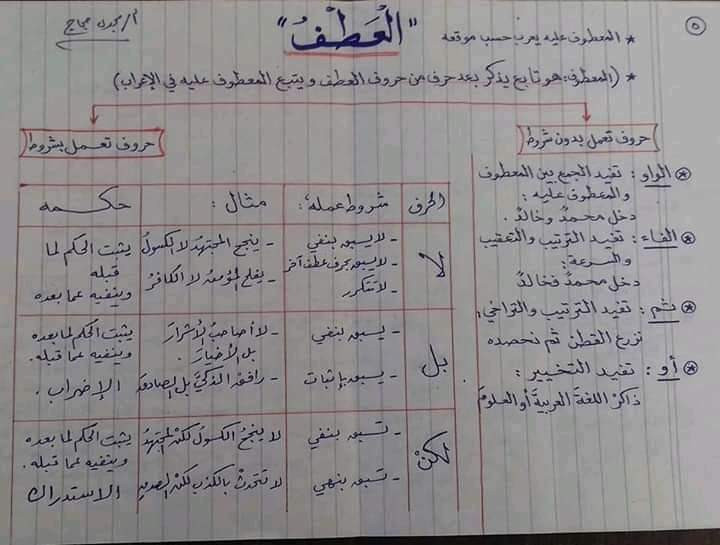 ٥
* المعطوف عليه يعرب حسب موقعه
"العَطْفُ"
أ/ مجدى حجاج
* (المعطوف: هو تابع يذكر بعد حرف من حروف العطف ويتبع المعطوف عليه في الإعراب)
حروف تعمل بدون شروط
* الواو: تفيد الجمع بين المعطوف
والمعطوف عليه:
دخل محمدٌ وخالدٌ.
* الفاء: تفيد الترتيب والتعقيب
والسرعة:
دخل محمدٌ فخالدٌ
* ثم: تفيد الترتيب والتراخي:
نزرع القطنَ ثم نحصده
* أو: تفيد التخيير:
ذاكرْ اللغةَ العربيةَ أو العلومَ
حروف تعمل بشروط
الحرف شروط عمله: مثال: حكمه
لا
- لا يسبق بنفي
- لا يسبق بحرف عطف آخر
- لا تتكرر
- ينجح المجتهدُ لا الكسولُ
- يفلح المؤمنُ لا الكافرُ
يثبت الحكم لما
قبله
وينفيه عما بعده
بل
- يسبق بنفي
- يسبق بإثبات
- لا أصاحبُ الأشرارَ
بل الأخيارَ.
- رافق الذكيَّ بل الصادقَ
يثبت الحكم لما بعده
وينفيه عما قبله.
الإضراب.
لكنْ
- تسبق بنفي
- تسبق بنهي
لا ينجحُ الكسولُ لكنْ المجتهدُ
لا تتحدثْ بالكذبِ لكنْ الصدقِ
يثبت الحكم لما بعده
وينفيه عما قبله.
الاستدراك